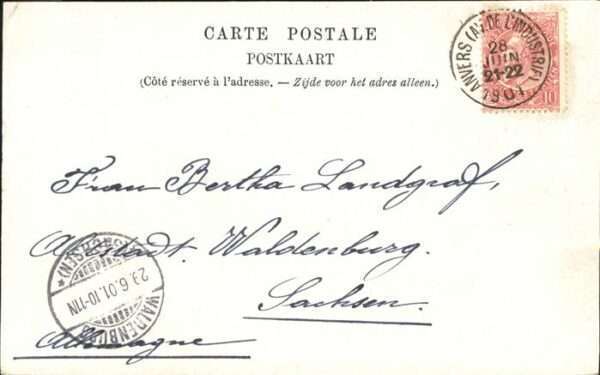 CARTE POSTALE
POSTKAART
(Côté réservé à l'adresse. — Zijde voor het adres alleen.)
ANVERS (AV. DE L'INDUSTRIE)
28
JUIN
21-22
1901
10
Frau Bertha Landgraf,
Altstadt. Waldenburg.
Sachsen.
Allemagne
WALDENBURG
(SACHSEN)
29.6.01.10-11N